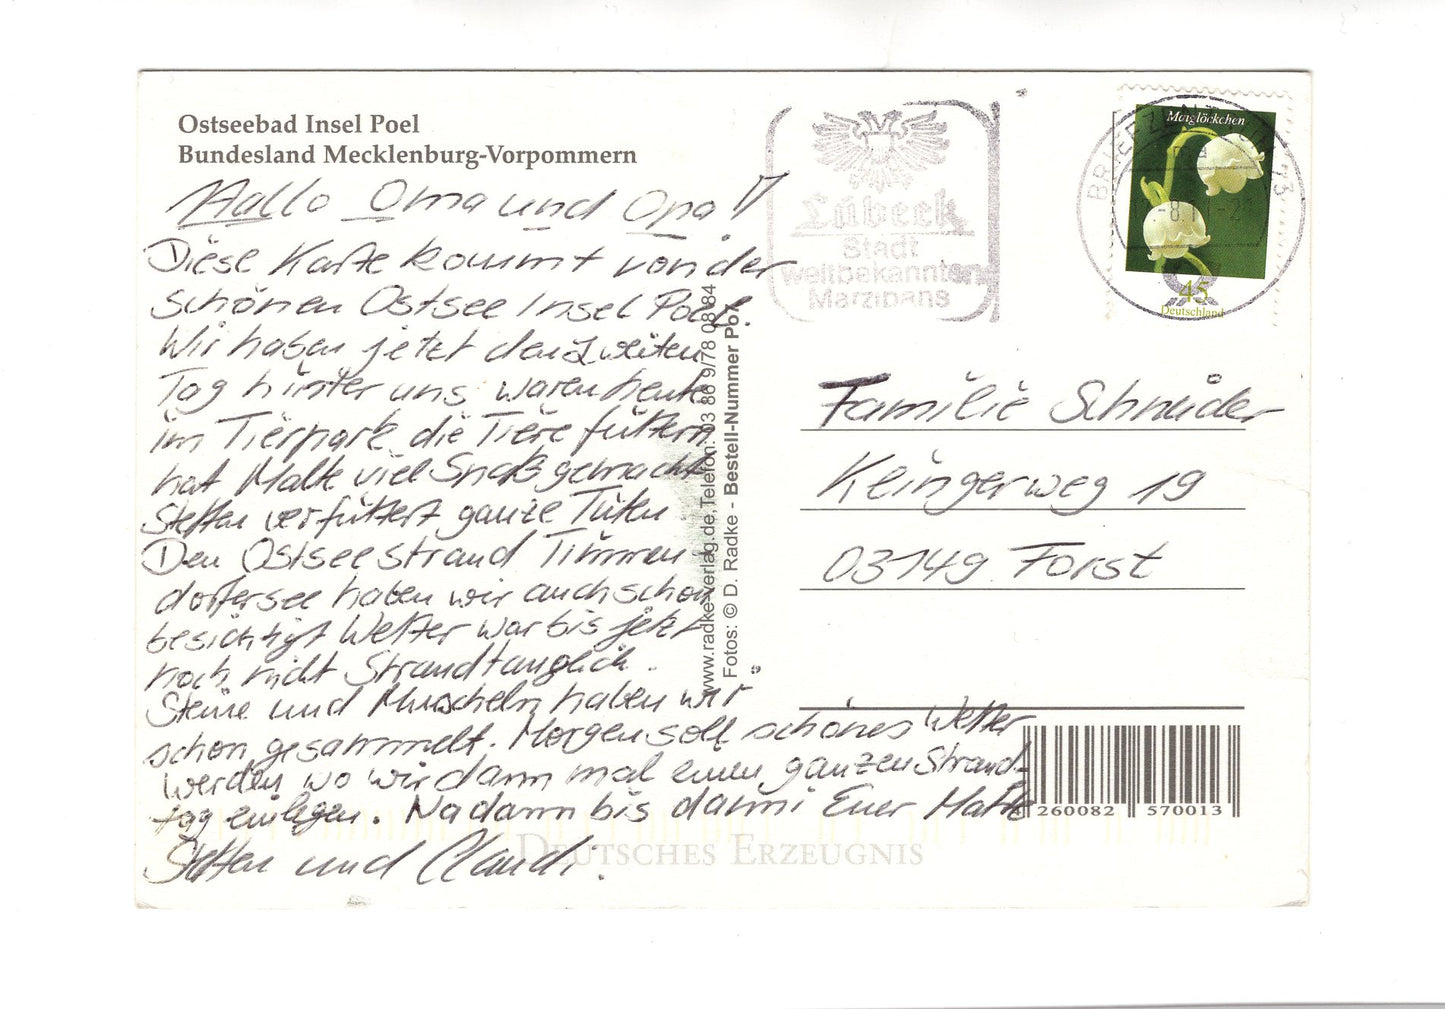 Ostseebad Insel Poel
Bundesland Mecklenburg-Vorpommern
Hallo Oma und Opa!
Diese Karte kommt von der
schönen Ostsee Insel Poel.
Wir haben jetzt den zweiten
Tag hinter uns waren heute
im Tierpark die Tiere füttern
hat Malte viel Spaß gemacht
Steffen verfüttert ganze Tüten
Den Ostseestrand Timmen
dorfersee haben wir auch schon
besichtigt Wetter war bis jetzt
noch nicht Strandtauglich.
Steine und Muscheln haben wir
schon gesammelt. Morgen soll schönes Wetter
werden wo wir dann mal einen ganzen Strand-
tag einlegen. Na dann bis dann! Euer Malte
Steffen und Claudi.
www.radke-verlag.de, Telefon: 03 86 9/78 08 84
Fotos: © D. Radke - Bestell-Nummer Po
Lübeck
Stadt
weltbekannten
Marzipans
BRIEFZENTRUM 23
-8.1 -2
Maiglöckchen
45
Deutschland
Familie Schneider
Klingerweg 19
03149 Forst
4 260082 570013
DEUTSCHES ERZEUGNIS